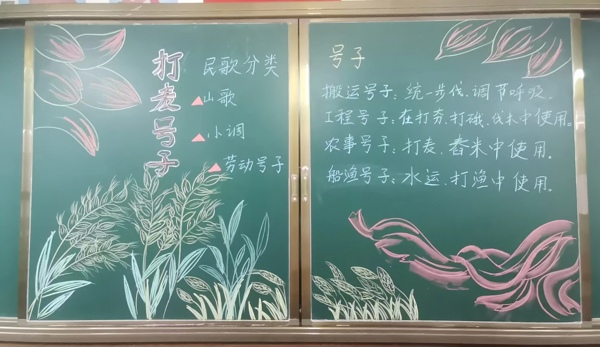 打麦号子
民歌分类
山歌
小调
劳动号子
号子
搬运号子：统一步伐、调节呼吸。
工程号子：在打夯、打硪、伐木中使用。
农事号子：打麦、舂米中使用。
船渔号子：水运、打渔中使用。